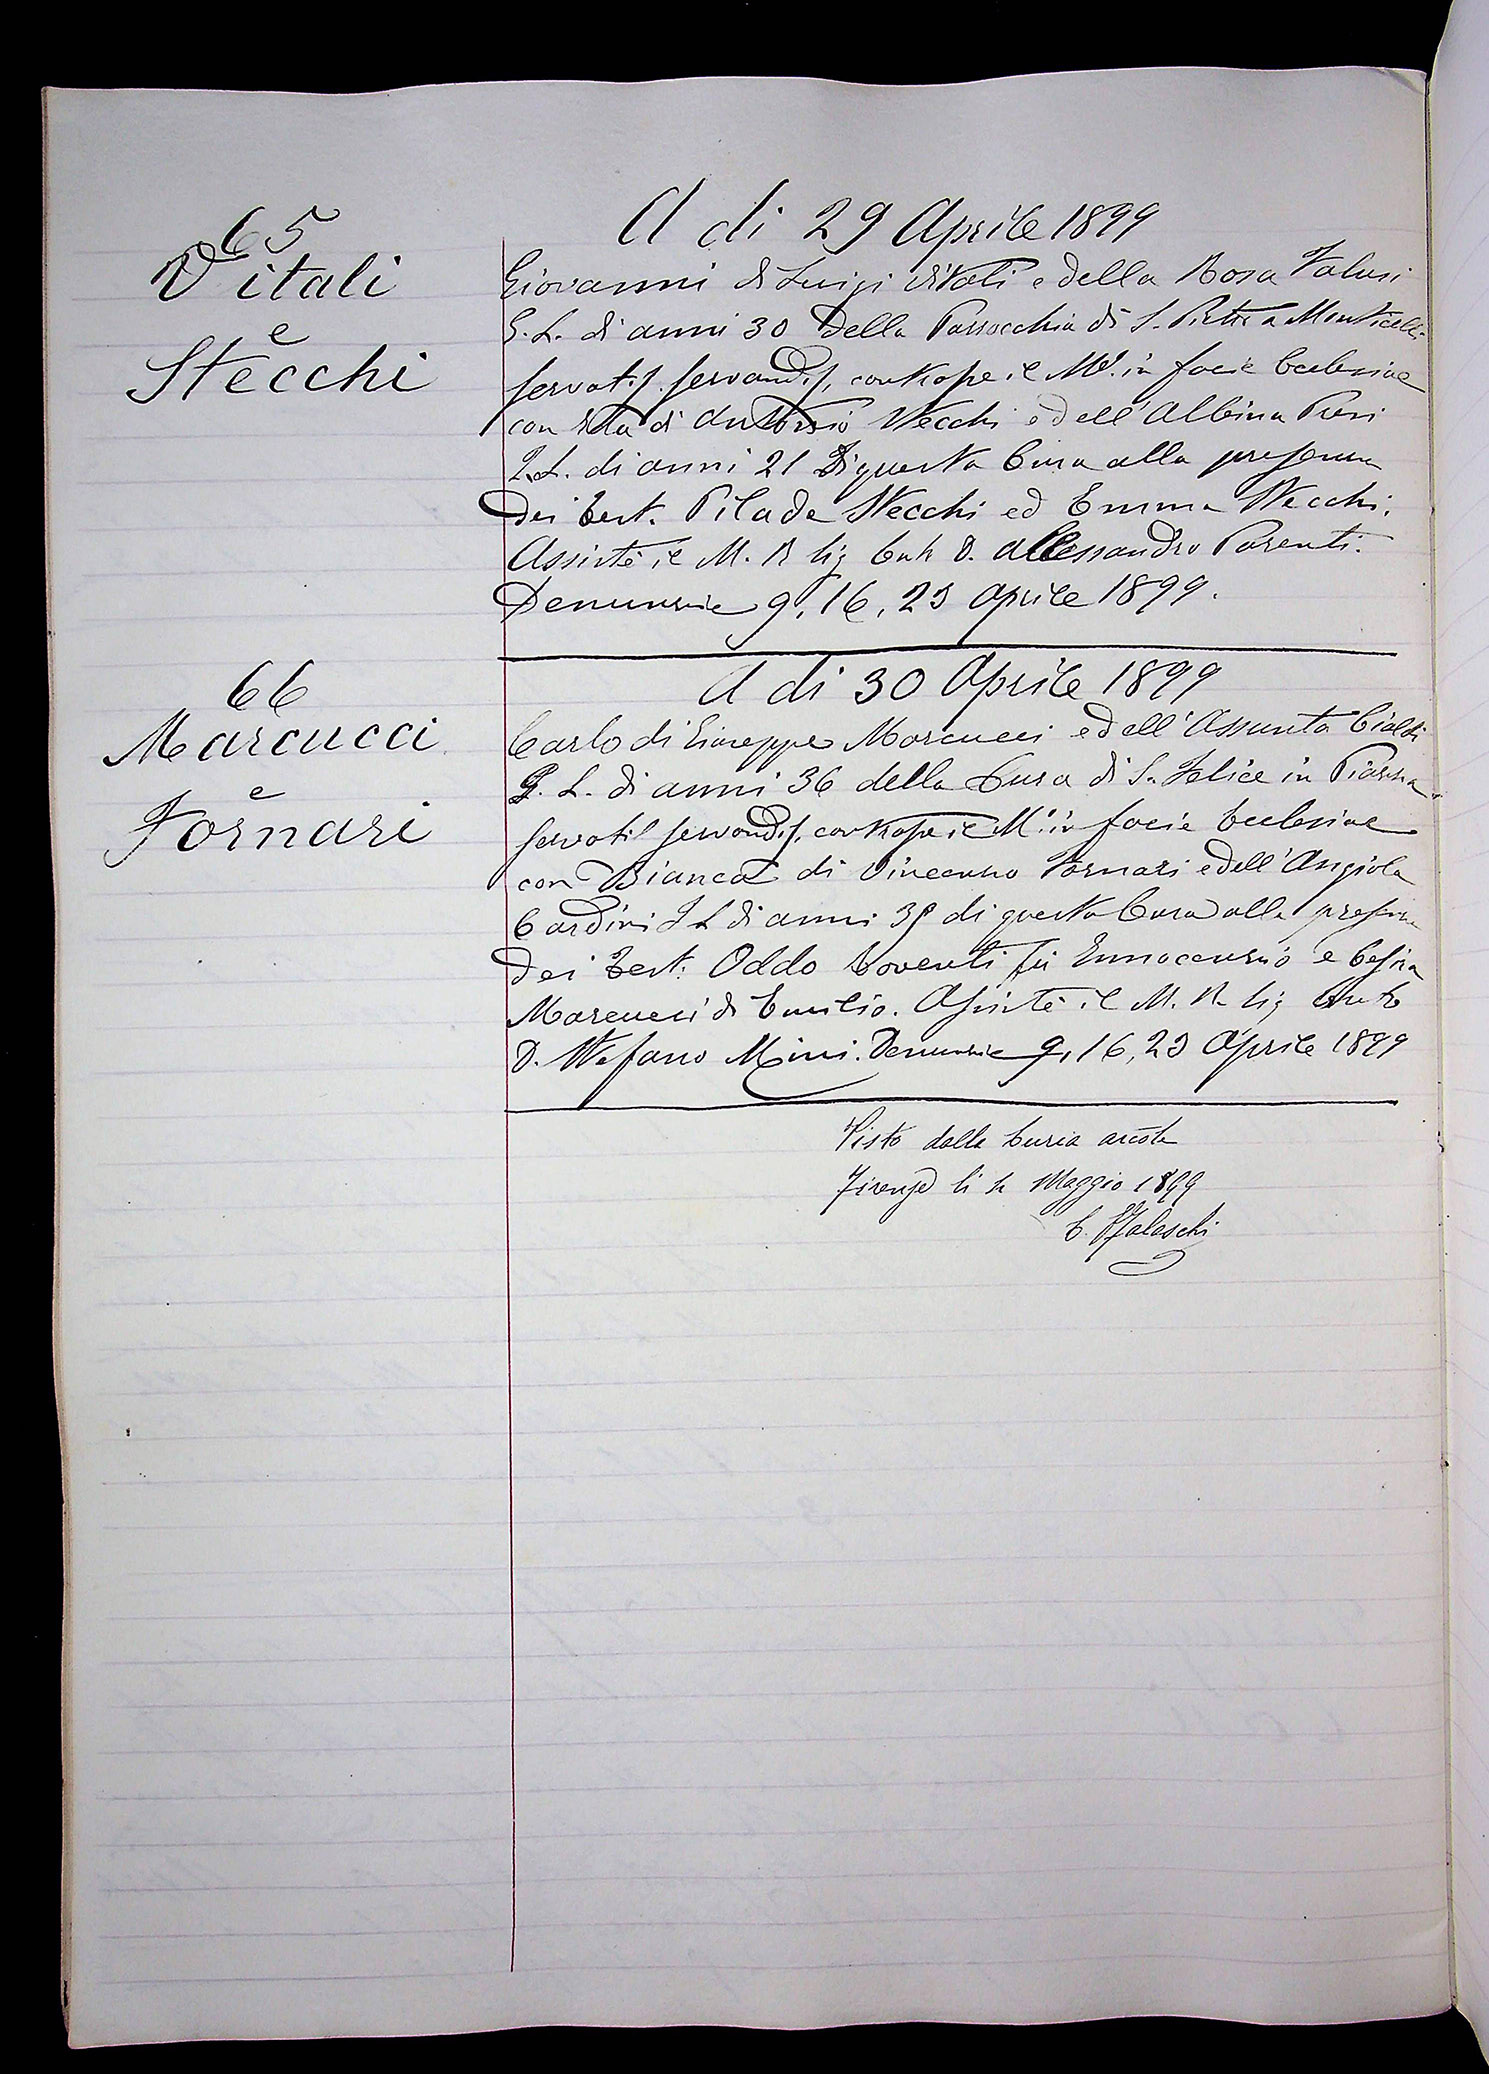 65
Vitali
e
Stecchi
A di 29 Aprile 1899
Giovanni di Luigi Vitali e della Rosa
G. L. di anni 30 della Parrocchia di S. Pietro a Monticelli
servatis servandis, contrasse il M°. in facie Ecclesiae
con di Antonio Stecchi e dell'Albina Pieri
L. di anni 21 di questa Cura alla presenza
dei Test. Pilade Stecchi ed Emma Stecchi.
Assistè il M. R. Sig. Cur. D. Alessandro Parenti.
Denunzie 9, 16, 23 Aprile 1899.
66
Marcucci
e
Fornari
A di 30 Aprile 1899
Carlo di Giuseppe Marcucci e dell'Assunta Cialdi
G. L. di anni 36 della Cura di S. Felice in Piazza
servatis servandis, contrasse il M°. in facie Ecclesiae
con Bianca di Vincenzo Fornari e dell'Angiola
Cardini L di anni di questa Cura alla presenza
dei Test. Oddo fu Innocenzio e
Marcucci di Emilio. Assistè il M. R. Sig. Curato
D. Stefano Mini. Denunzie 9, 16, 23 Aprile 1899
Visto dalla Curia
Firenze li Maggio 1899